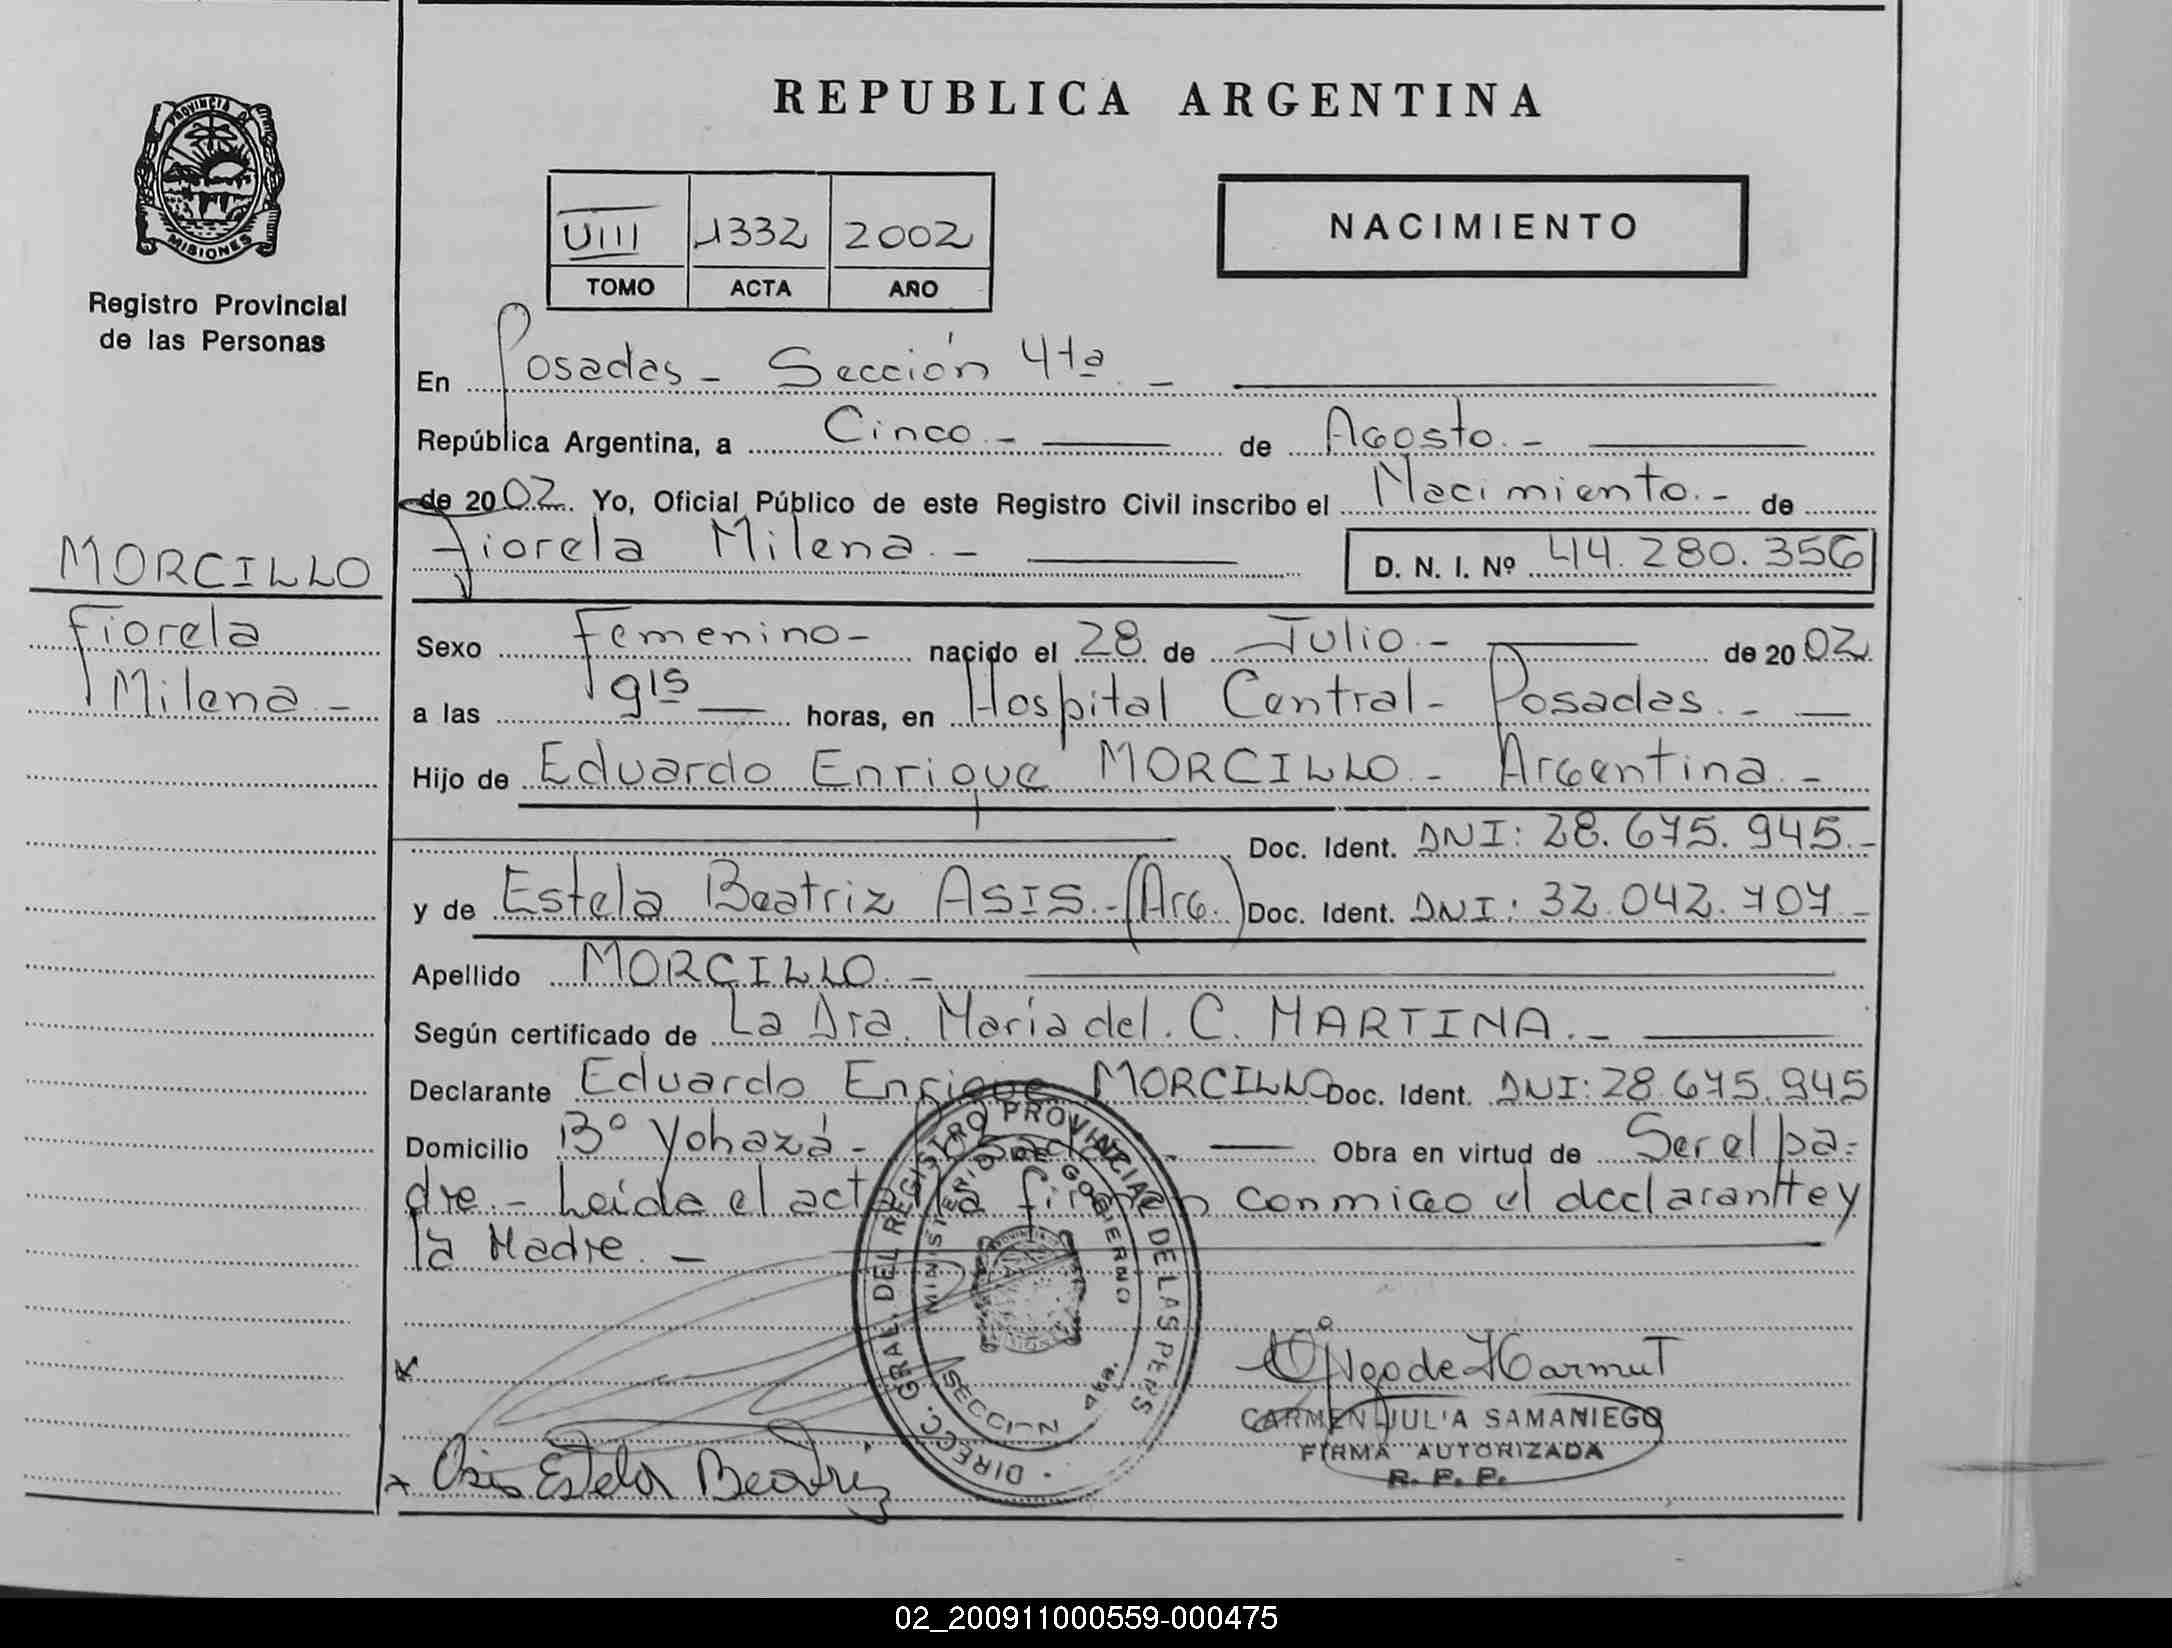 REPUBLICA ARGENTINA
PROVINCIA DE
MISIONES
Registro Provincial
de las Personas
VIII 1332 2002
TOMO ACTA AÑO
NACIMIENTO
En Posadas - Sección 4ta. -
República Argentina, a Cinco. - de Agosto. -
de 2002. Yo, Oficial Público de este Registro Civil inscribo el Nacimiento. - de
Fiorela Milena. - D. N. I. Nº 44.280.356
MORCILLO
Fiorela
Milena. -
Sexo Femenino - nacido el 28 de Julio. - de 2002.
a las 9 15 horas, en Hospital Central - Posadas. -
Hijo de Eduardo Enrique MORCILLO. - Argentina. -
Doc. Ident. DNI: 28.675.945. -
y de Estela Beatriz ASIS. - (Arg.) Doc. Ident. DNI: 32.042.707 -
Apellido MORCILLO. -
Según certificado de La Dra. María del. C. MARTINA. -
Declarante Eduardo Enrique MORCILLO Doc. Ident. DNI: 28.675.945
Domicilio Bº Yohazá - Obra en virtud de Ser el pa-
dre. - Leída el acta la firman conmigo el declarante y
la Madre. -
DIRECC. GRAL. DEL REGISTRO PROVINCIAL DE LAS PENS
MINISTERIO DE GOBIERNO
SECCION 4ta.
de Harmut
CARMEN JULIA SAMANIEGO
FIRMA AUTORIZADA
R. P. P.
Asis Estela Beatriz
02_200911000559-000475